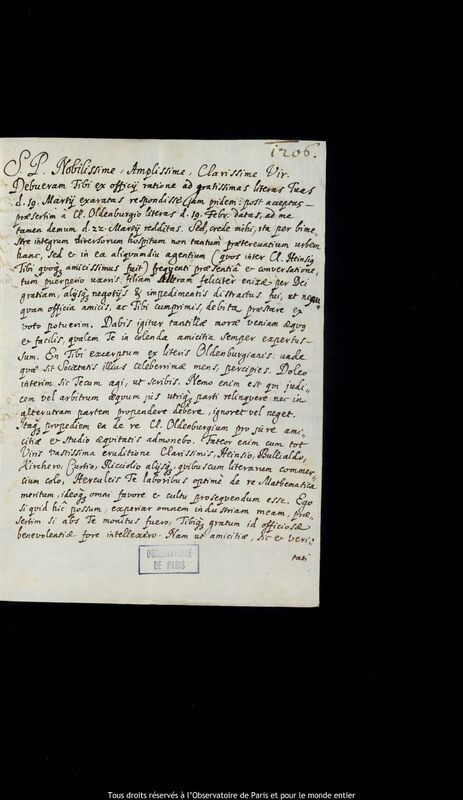 1206.
S. P. Nobilissime, Amplissime, Clarissime Vir.
Debueram Tibi ex officij ratione ad gratissimas literas Tuas
d. 19. Martij exaratas respondisse jam pridem: post acceptas
præsertim à Cl. Oldenburgio literas d. 19. Febr. datas, ad me
tamen demum d. 22. Martij redditas. Sed, crede mihi, ita per bime,,
stre integrum diversorum hospitum non tantum prætereuntium urbem
hanc, sed et in ea aliquamdiu agentium (quos inter Cl. Heinsig
Tibi quoq3 amicissimus fuit) frequenti præsentiâ et conversatione,
tum puerperio uxoris, filiam alteram feliciter enixæ per Dei
gratiam, alijsq3 negotijs & impedimentis distractus fui, ut neq3
quam officia amicis, ac Tibi cumprimis, debita præstare ex
voto potuerim. Dabis igitur tantillæ moræ veniam æquq
et facilis, qualem Te in colenda amicitia semper expertus
sum. En Tibi excerptum ex literis Oldenburgianis: unde
quæ sit Societatis illius celeberrimæ mens, percipies. Doleo
interim sic Tecum agi, ut scribis. Nemo enim est qui judi,,
cem vel arbitrum æquum jus utriq3 parti relinquere nec in
alterutram partem propendere debere, ignoret vel neget.
Itaq3 propediem ea de re Cl. Oldenburgium pro jure ami,,
citiæ et studio æquitatis admonebo. Fateor enim cum tot
Viris vastissima eruditione Clarissimis, Heinsio, Bullialdo,
Kirchero, Curtio, Ricciolio alijsq3, quibuscum literarum commer,,
cium colo, Herculeis Te laboribus optimè de re Mathematica
meritum, ideoq3 omni favore et cultu prosequendum esse. Ego
si quid hîc possum, experiar omnem industriam meam, præ,,
sertim si abs Te monitus fuero, Tibiq3 gratum id officiosæ
benevolentiæ fore intellexero. Nam ut amicitiæ, sic et veri,,
tati
OBSERVATOIRE
DE PARIS
Tous droits réservés à l'Observatoire de Paris et pour le monde entier